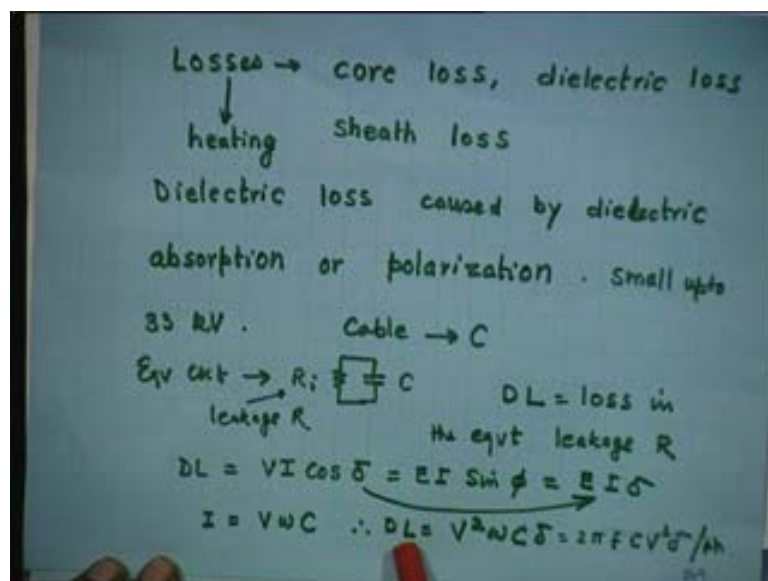 Losses → core loss, dielectric loss
↓
heating sheath loss
Dielectric loss caused by dielectric
absorption or polarization . Small upto
33 kV . Cable → C
Eqv ckt → Ri C
leakage R DL = loss in
the eqvt leakage R
DL = VI cos δ = EI Sin φ = EI δ
I = VωC ∴ DL = V²ωCδ = 2πfCV²δ/ph